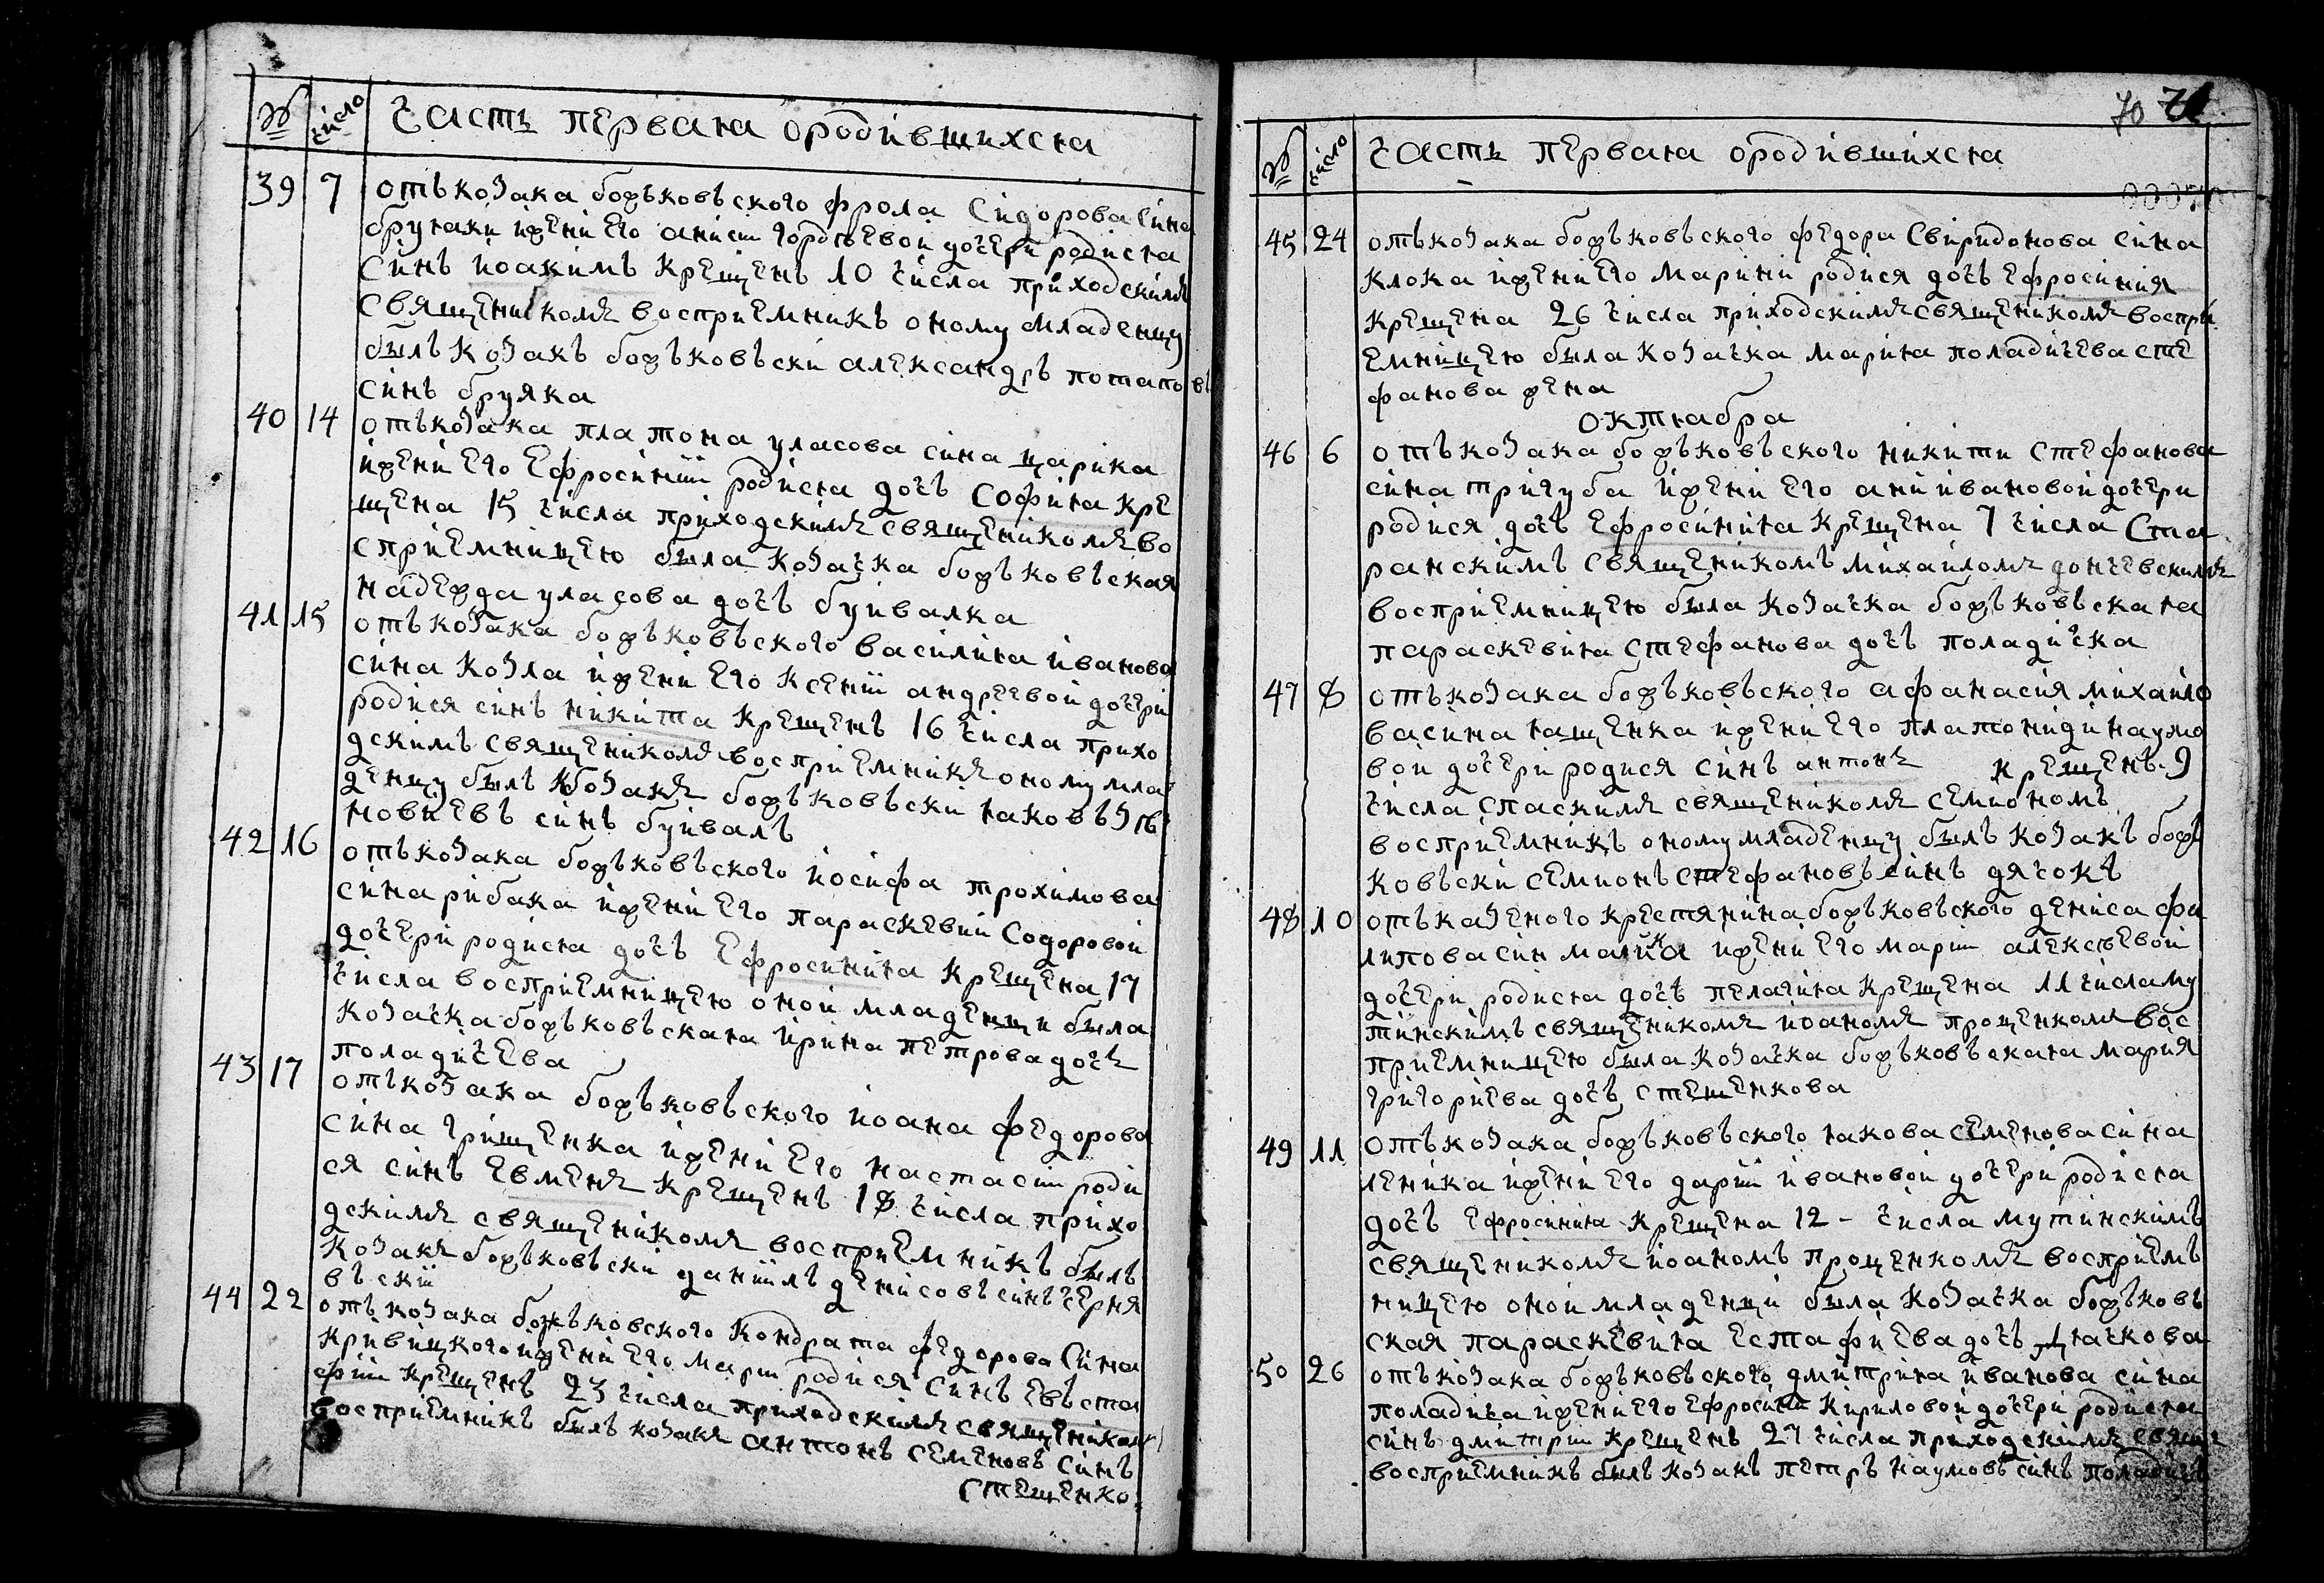 № число Часть первая ородившихся
39 7 отъ козака божъковъского фрола Сидорова сина
бруяки иженѝ его аниси гордѣевой дочери родися
Синъ иоакимъ крещенъ 10 числа приходскимъ
Священикомъ восприемникъ оному младенцу
былъ козакъ божъковъски александръ потаповъ
синъ бруяка
40 14 отъ козака платона уласова сина царика
ижени его Ефросинии родися дочь София кре
щена 15 числа приходскимъ священикомъ во
сприемницею была козачка божъковъская
надежда уласова дочъ буивалка
41 15 отъ козака божъковъского василия иванова
сина козла ижени его ксении андреевой дочери
родися синъ никита крещенъ 16 числа прихо
дскимъ священикомъ восприемникъ оному мла
денцу былъ козакъ божъковъски яковъ зѣ
новиевъ синъ буивалъ
42 16 отъ козака божъковъского иосифа трохимова
сина рибака ижени его параскевии Содоровой
дочери родися дочъ Ефросиния крещена 17
числа восприемницею оной младенци была
козачка божъковъская ирина петрова дочъ
поладичева
43 17 отъ козака божъковъского иоана федорова
сина грищенка ижени его настасии роди
ся синъ Евменъ крещенъ 18 числа прихо
дскимъ священикомъ восприемникъ былъ
козакъ божъковъски данийлъ денисовъ синъ черня
въский
44 22 отъ козака божъковского Кондрата федорова Сина
кривицкого ижени его марии родися Синъ Евъста
фий крещенъ 23 числа приходскимъ священиком
восприемникъ былъ козакъ антонъ семеновъ синъ
Стещенко
70
№ число Часть первая ородившихся
45 24 отъ козака божъковъского федора Свиридонова сина
клока ижени его марини родися дочъ Ефросиния
крещена 26 числа приходскимъ священикомъ воспри
емницею была козачка мария поладичева сте
фанова жена
октября
46 6 отъ козака божъковъского никити Стефанова
сина тригуба ижени его ани ивановой дочери
родися дочъ Ефросиния крещена 7 числа Ста
ранскимъ священикомъ михаиломъ дончевскимъ
восприемницею была козачка божъковъская
параскевия Стефанова дочъ поладичка
47 8 отъ козака божъковъского афанасия михаило
ва сина ященка ижени его платониди наумо
вой дочери родися синъ антонъ крещенъ 9
числа спаскимъ священикомъ семиономъ
восприемникъ оному младенцу былъ козакъ божъ
ковъски семионъ стефановъ синъ дячокъ
48 10 отъ казеного крестянина божъковъского дениса фи
липова син малика ижени его марии алексѣевой
дочери родися дочъ пелагия крещена 11 числа му
тинскимъ священикомъ иоаномъ проценкомъ вос
приемницею была козачка божъковъская мария
григориева дочъ стешенкова
49 11 отъ козака божъковъского якова семенова сина
леника ижени его дарии ивановой дочери родися
дочъ Ефросиния крещена 12 - числа мутинскимъ
священикомъ иоаномъ проценкомъ восприемъ
ницею оной младенци была козачка божъковъ
ская параскевия Естафиева дочъ дячкова
50 26 отъ козака божъковъского дмитрия иванова сина
поладича ижени его Ефросинии кириловой дочери родися
синъ дмитрий крещенъ 27 числа приходскимъ свящ
восприемникъ былъ козакъ петръ наумовъ синъ поладичъ